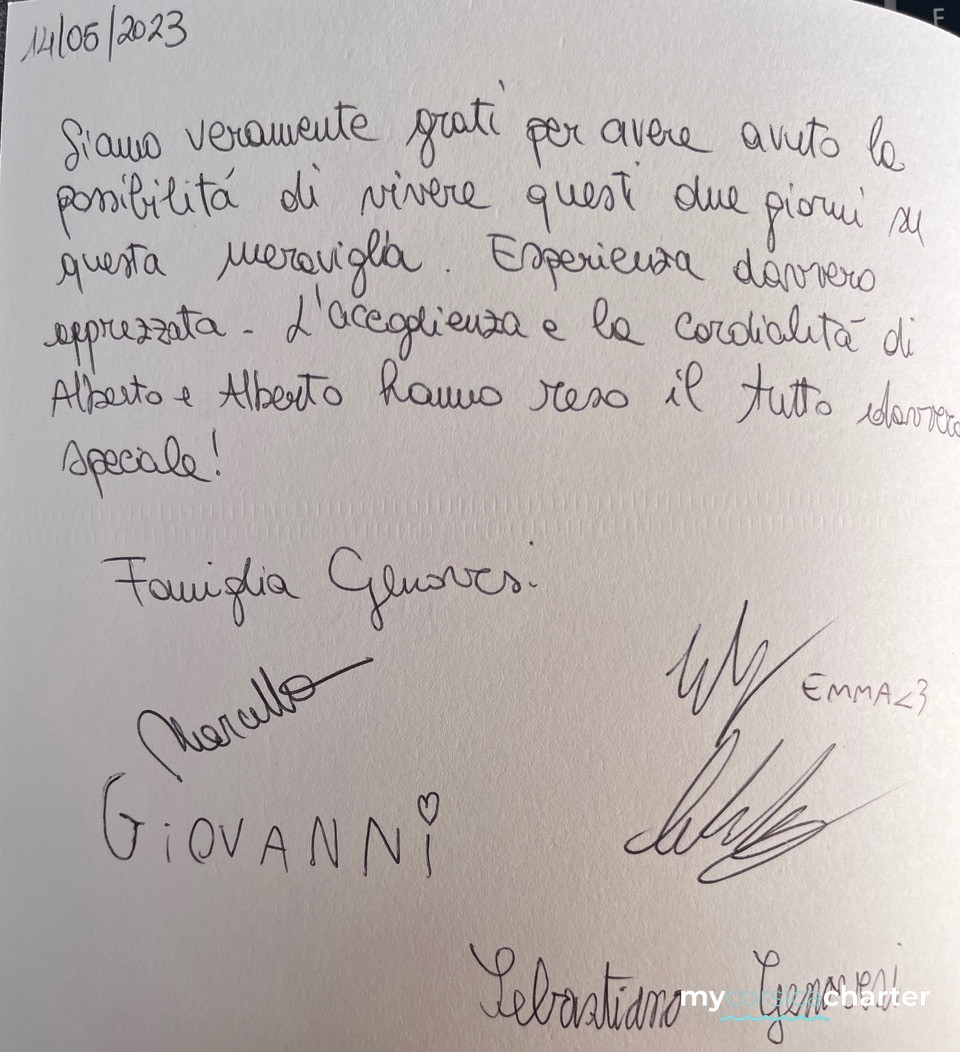 14/05/2023
Siamo veramente grati per avere avuto la
possibilitá di vivere questi due giorni su
questa meraviglia. Esperienza davvero
apprezzata - L'accoglienza e la cordialitá di
Alberto e Alberto hanno reso il tutto davvero
speciale!
Famiglia Genovesi
Marcello
EMMA<3
GiOVANNi
Sebastiano Genovesi
mycorsicacharter
F